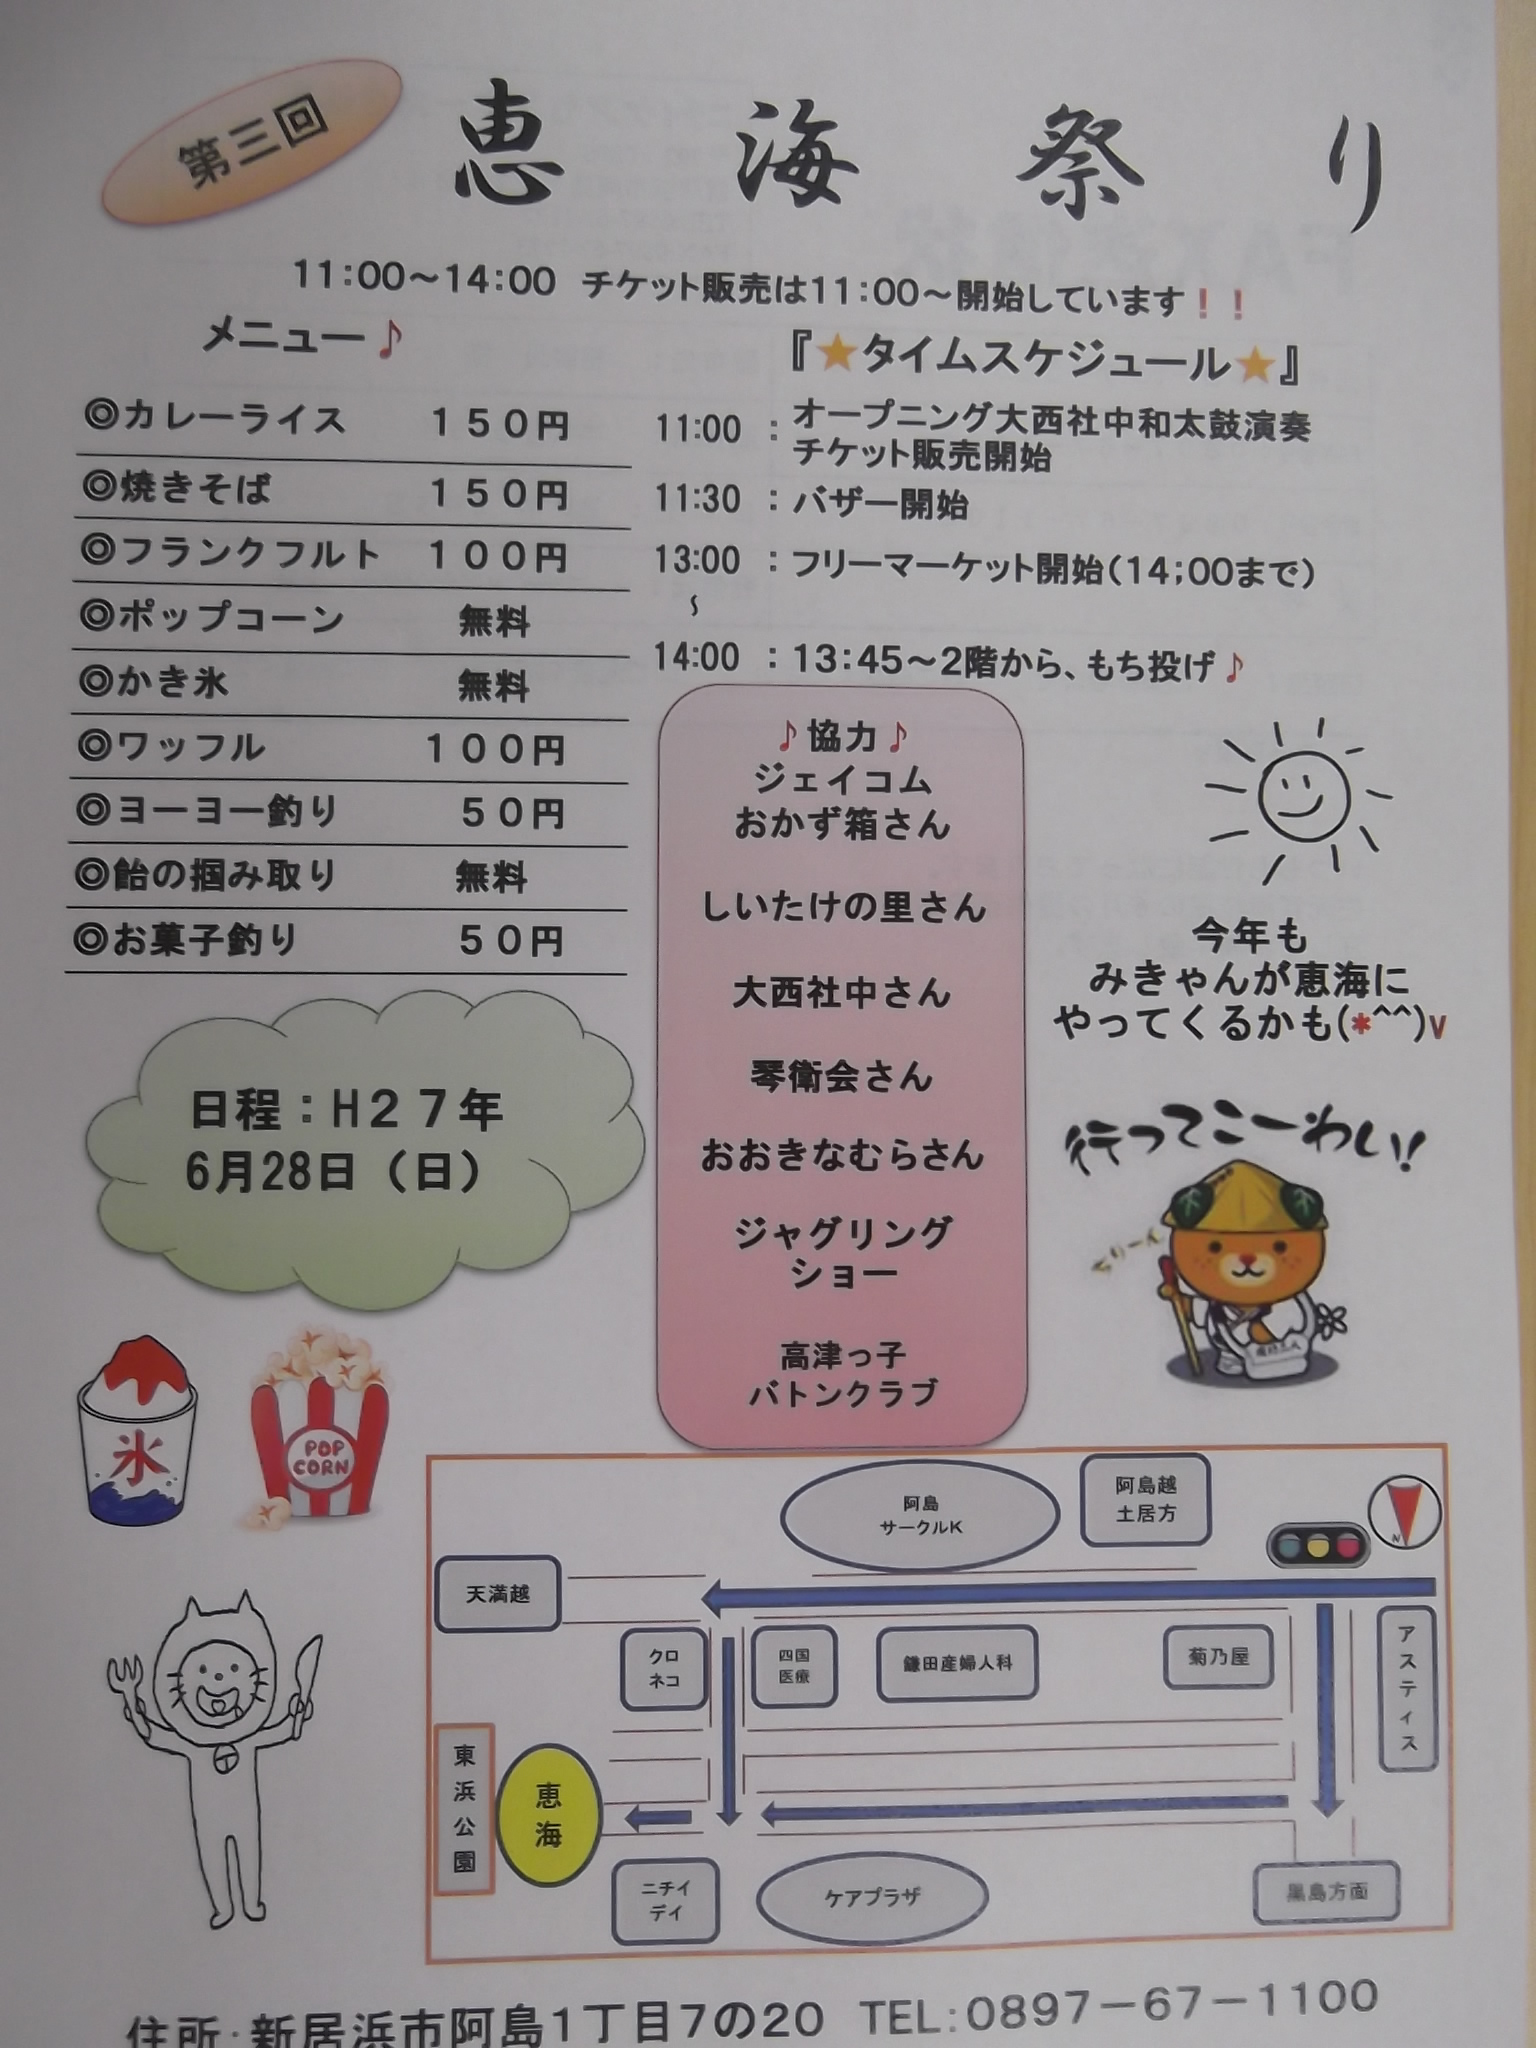 第三回
恵海祭り
11:00～14:00 チケット販売は11:00～開始しています！！
メニュー♪
◎カレーライス 150円
◎焼きそば 150円
◎フランクフルト 100円
◎ポップコーン 無料
◎かき氷 無料
◎ワッフル 100円
◎ヨーヨー釣り 50円
◎飴の掴み取り 無料
◎お菓子釣り 50円
『★タイムスケジュール★』
11:00 : オープニング大西社中和太鼓演奏
チケット販売開始
11:30 : バザー開始
13:00 : フリーマーケット開始(14;00まで)
～
14:00 : 13:45～2階から、もち投げ♪
♪協力♪
ジェイコム
おかず箱さん
しいたけの里さん
大西社中さん
琴衛会さん
おおきなむらさん
ジャグリング
ショー
高津っ子
バトンクラブ
今年も
みきゃんが恵海に
やってくるかも(*^^)v
行ってこーわい!!
日程：H27年
6月28日（日）
氷
POP
CORN
阿島
サークルK
阿島越
土居方
N
天満越
クロ
ネコ
四国
医療
鎌田産婦人科
菊乃屋
アスティス
東浜公園
恵海
ニチイ
デイ
ケアプラザ
黒島方面
住所:新居浜市阿島1丁目7の20 TEL:0897－67－1100